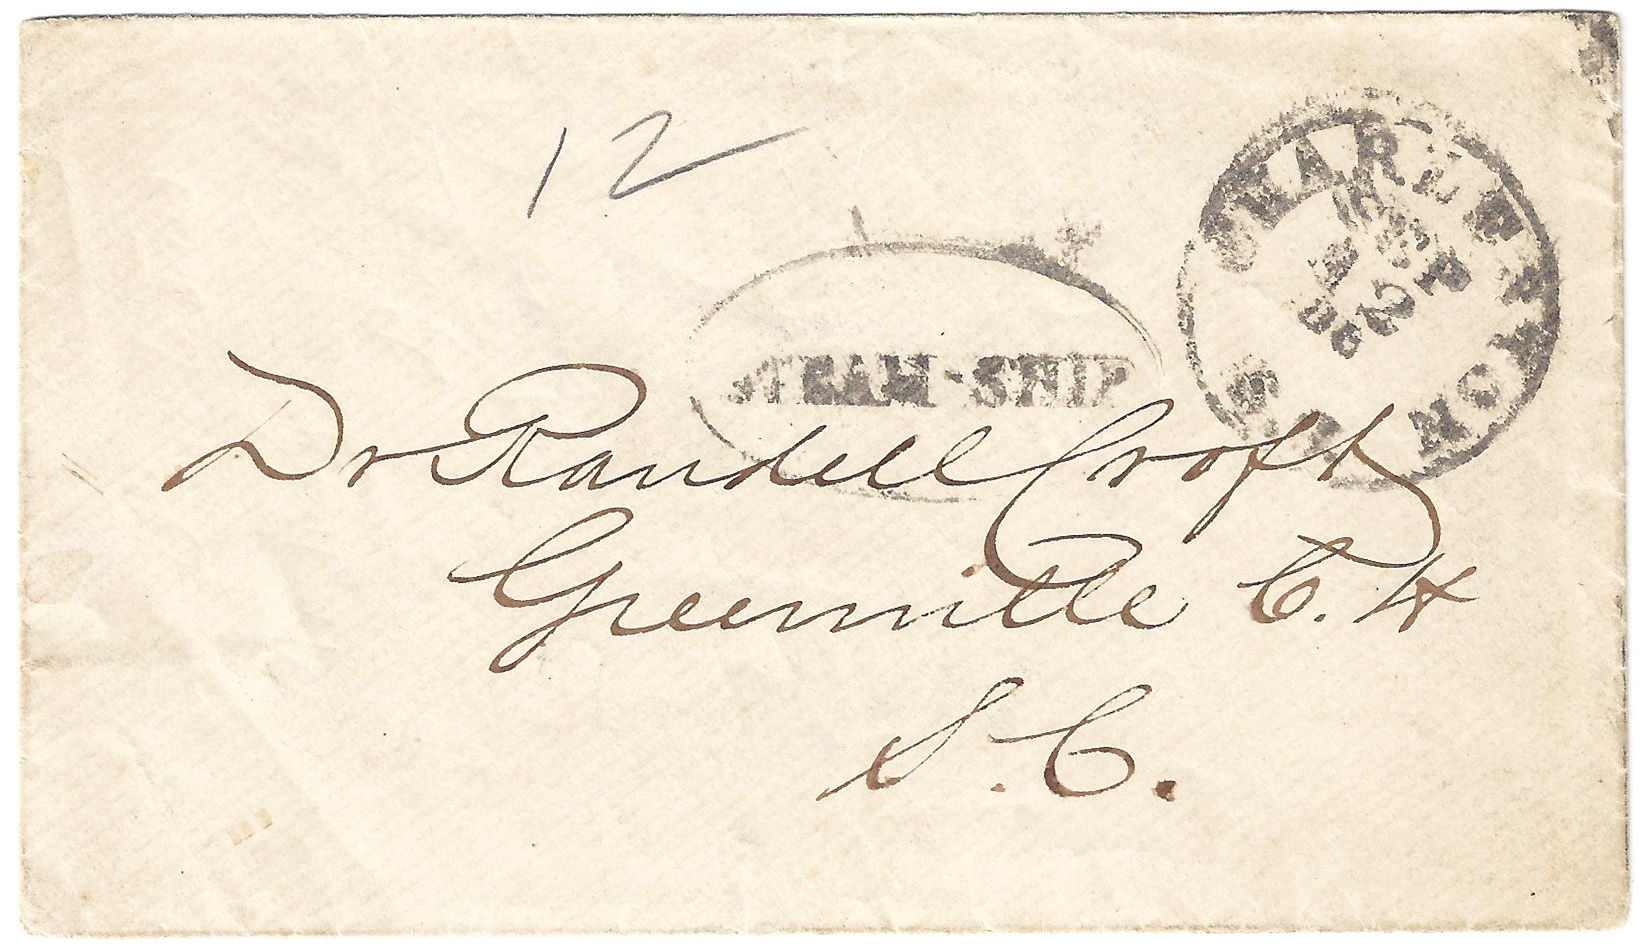 12
CHARLESTON
SEP
2
STEAM-SHIP
Dr Randell Croft
Greenville C. H
S. C.